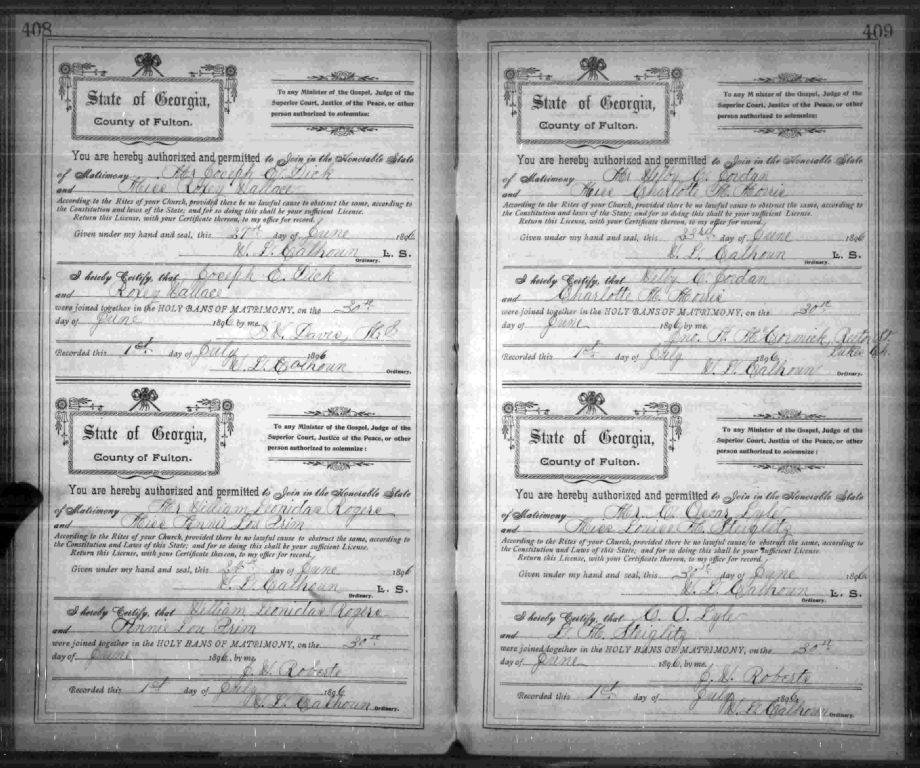 408
State of Georgia,
County of Fulton.
To any Minister of the Gospel, Judge of the
Superior Court, Justice of the Peace, or other
person authorized to solemnize:
You are hereby authorized and permitted to Join in the Honorable State
of Matrimony Mr Joseph E. Dick
and Miss Roxey Wallace
According to the Rites of your Church, provided there be no lawful cause to obstruct the same, according to
the Constitution and laws of the State; and for so doing this shall be your sufficient License.
Return this License, with your Certificate thereon, to my office for record.
Given under my hand and seal, this 27th day of June 1896
W. L. Calhoun L. S.
Ordinary.
I hereby Certify, that Joseph E. Dick
and Roxey Wallace
were joined together in the HOLY BANS OF MATRIMONY, on the 30th
day of June 1896, by me.
Davis, M. G.
Recorded this 1st day of July 1896
W. L. Calhoun
Ordinary.
State of Georgia,
County of Fulton.
To any Minister of the Gospel, Judge of the
Superior Court, Justice of the Peace, or other
person authorized to solemnize:
You are hereby authorized and permitted to Join in the Honorable State
of Matrimony Mr William Leonidas Rogers
and Miss Annie Lou Prim
According to the Rites of your Church, provided there be no lawful cause to obstruct the same, according to
the Constitution and Laws of this State; and for so doing this shall be your sufficient License.
Return this License, with your Certificate thereon, to my office for record.
Given under my hand and seal, this day of June 1896
W. L. Calhoun L. S.
Ordinary.
I hereby Certify, that William Leonidas Rogers
and Annie Lou Prim
were joined together in the HOLY BANS OF MATRIMONY, on the 30th
day of June 1896, by me.
J. W. Roberts
Recorded this 1st day of July 1896
W. L. Calhoun
Ordinary.
409
State of Georgia,
County of Fulton.
To any Minister of the Gospel, Judge of the
Superior Court, Justice of the Peace, or other
person authorized to solemnize:
You are hereby authorized and permitted to Join in the Honorable State
of Matrimony Mr Wiley C. Jordan
and Miss Charlotte M. Morris
According to the Rites of your Church, provided there be no lawful cause to obstruct the same, according to
the Constitution and laws of this State; and for so doing this shall be your sufficient License.
Return this License, with your Certificate thereon, to my office for record.
Given under my hand and seal, this 23rd day of June 1896
W. L. Calhoun L. S.
Ordinary.
I hereby Certify, that Wiley C. Jordan
and Charlotte M. Morris
were joined together in the HOLY BANS OF MATRIMONY, on the 30th
day of June 1896, by me.
Jno. N. McCormick, Rector St
Luke's Ch.
Recorded this 1st day of July 1896
W. L. Calhoun
Ordinary.
State of Georgia,
County of Fulton.
To any Minister of the Gospel, Judge of the
Superior Court, Justice of the Peace, or other
person authorized to solemnize:
You are hereby authorized and permitted to Join in the Honorable State
of Matrimony Mr. O. Oscar Lyle
and Miss Louise M. Steiglitz
According to the Rites of your Church, provided there be no lawful cause to obstruct the same, according to
the Constitution and Laws of this State; and for so doing this shall be your sufficient License.
Return this License, with your Certificate thereon, to my office for record.
Given under my hand and seal, this 30th day of June 1896
W. L. Calhoun L. S.
Ordinary.
I hereby Certify, that O. O. Lyle
and L. M. Steiglitz
were joined together in the HOLY BANS OF MATRIMONY, on the 30th
day of June 1896, by me.
J. W. Roberts
Recorded this 1st day of July 1896
W. L. Calhoun
Ordinary.